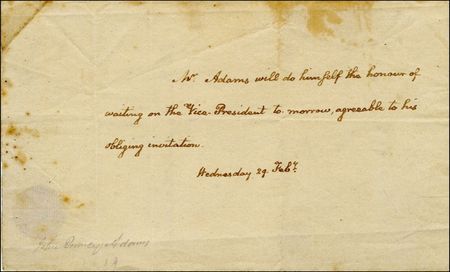 Mr Adams will do himself the honour of
waiting on the Vice-President to-morrow, agreeable to his
obliging invitation.
Wednesday 29. Feby.
John Quincy Adams